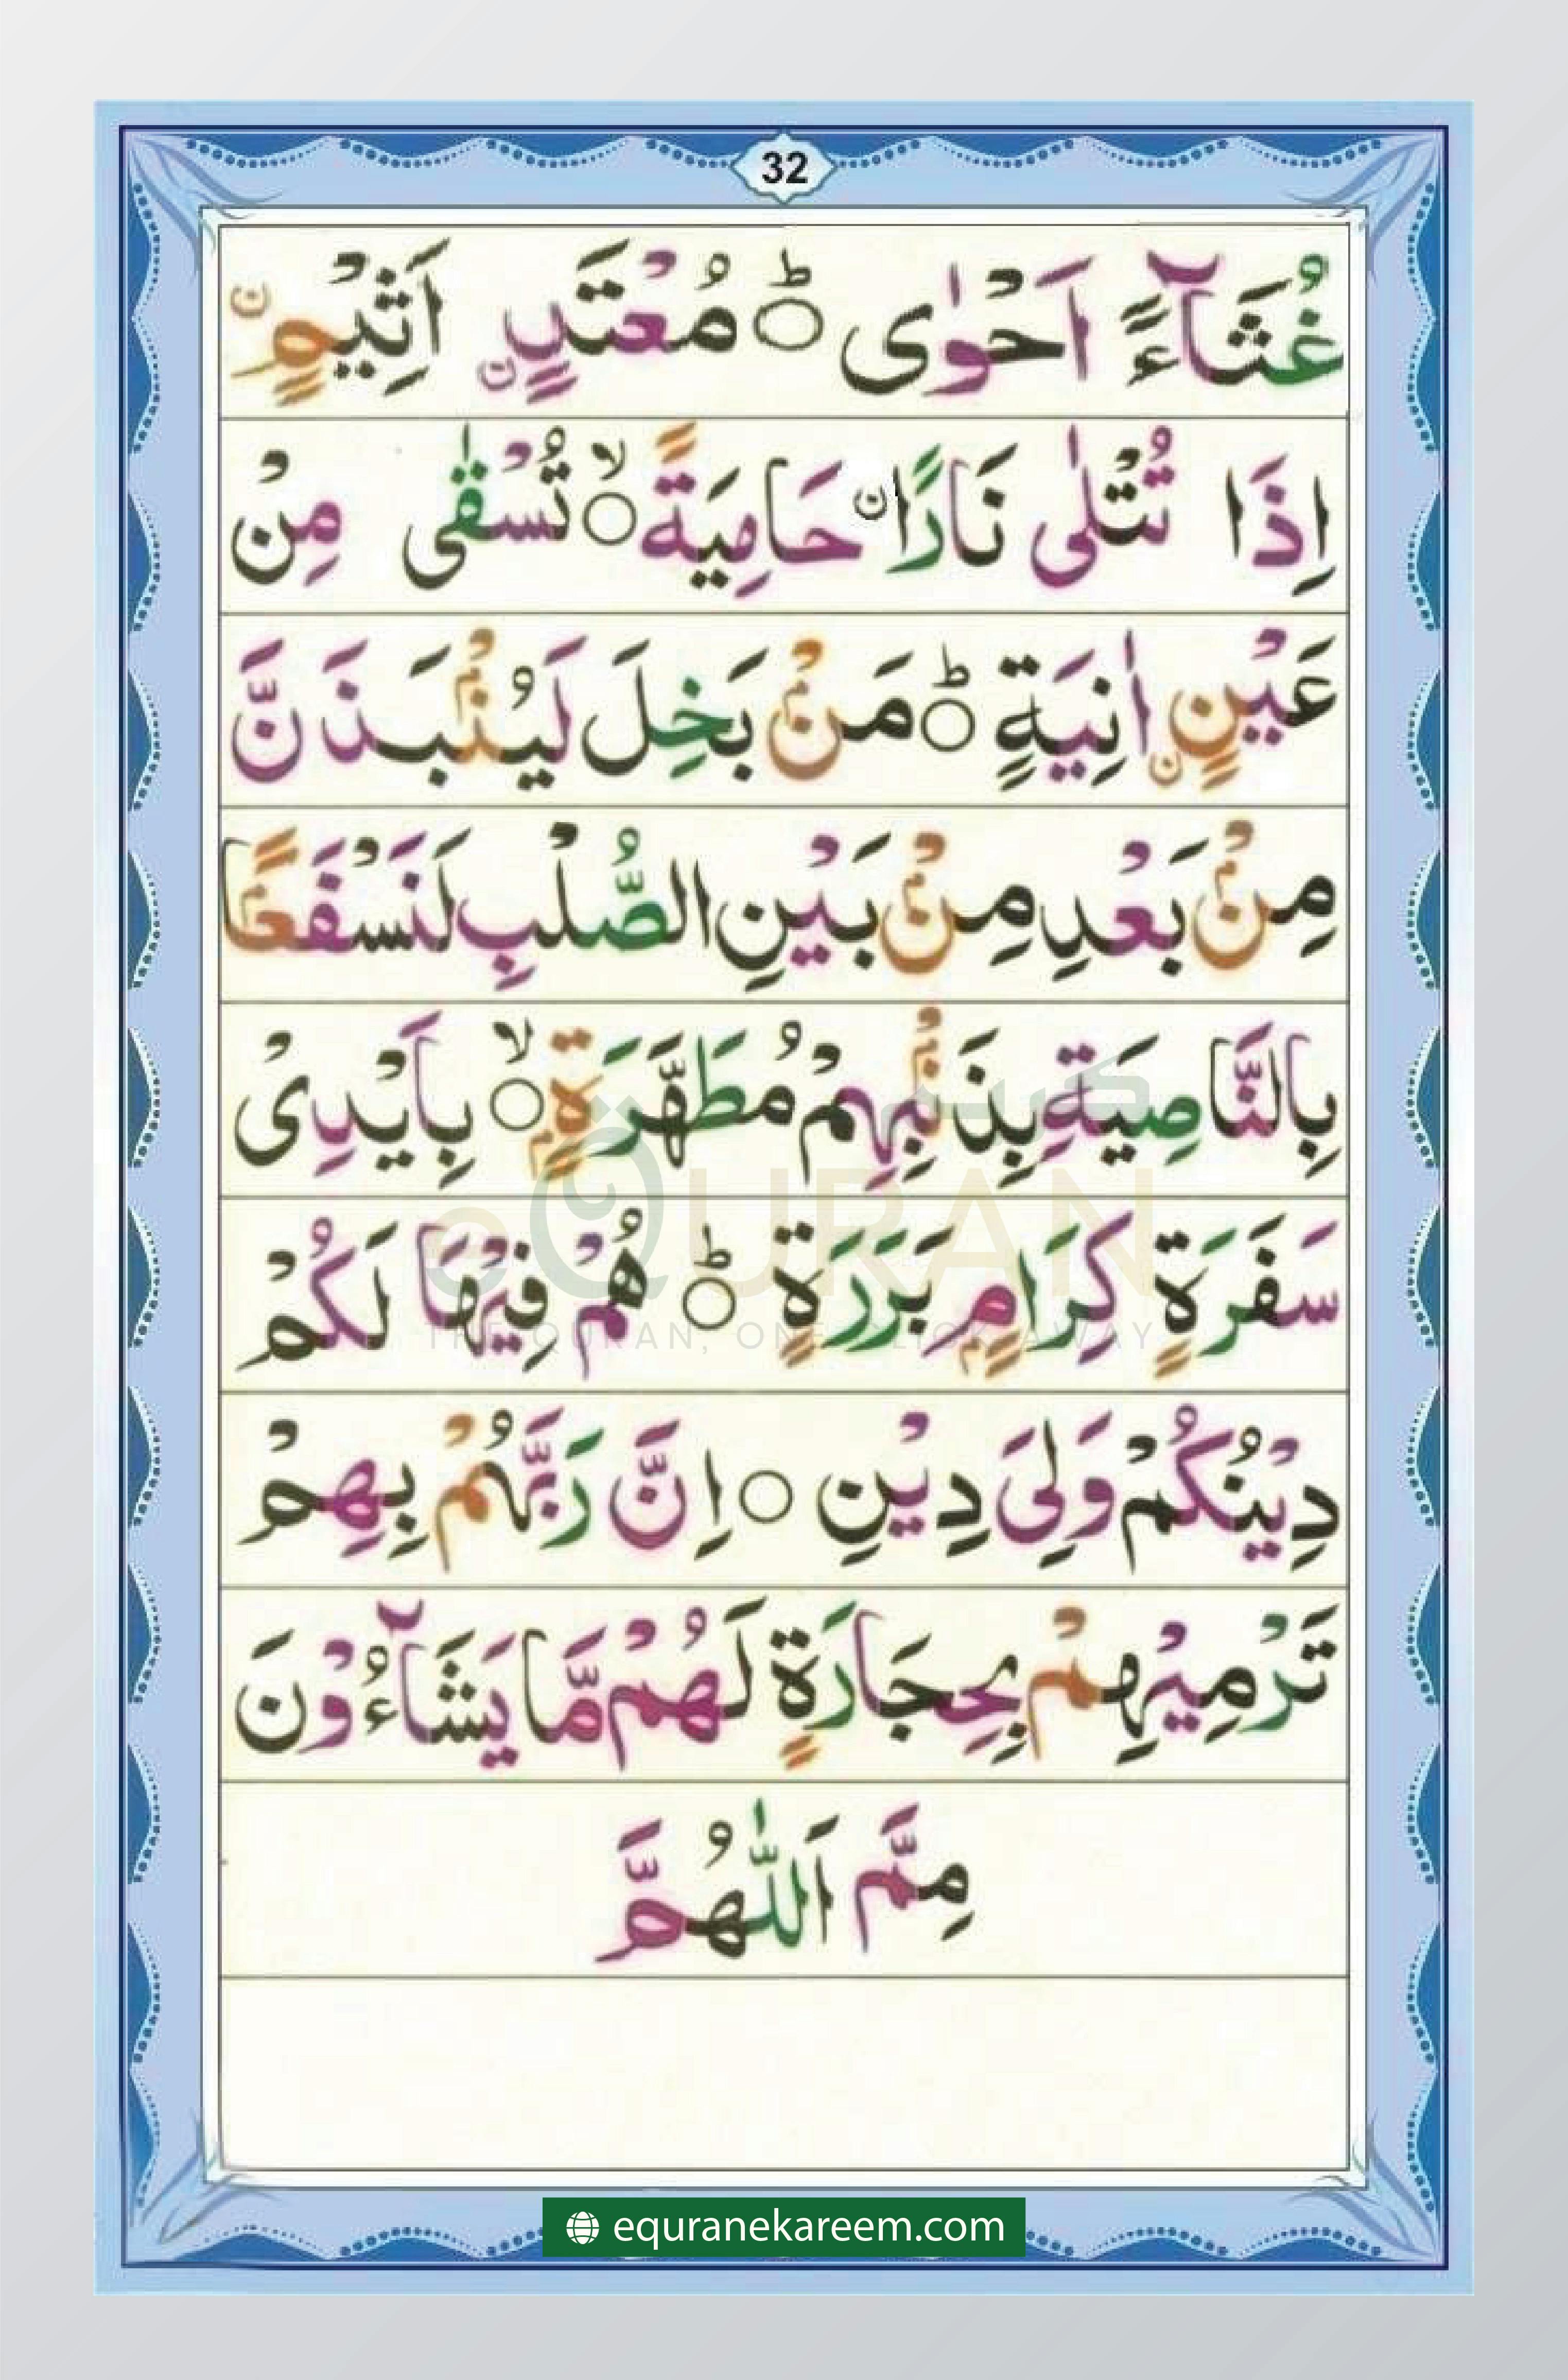 32
غُثَآءً اَحْوٰى ○ؕ مُعْتَدٍ ن اَثِيْمٍ ن
اِذَا تُتْلٰى نَارًا ن حَامِيَةً ○ۙ تُسْقٰى مِنْ
عَيْنٍ ن اٰنِيَةٍ ○ؕ مَنْۢ بَخِلَ لَيُنْۢبَذَنَّ
مِنْۢ بَعْدِ مِنْۢ بَيْنِ الصُّلْبِ لَنَسْفَعًۢا
بِالنَّاصِيَةِ بِذَنْۢبِهِمْ مُطَهَّرَةٍۭ ○ۙ بِاَيْدِىْ
سَفَرَةٍ كِرَامٍۭ بَرَرَةٍ ○ؕ هُمْ فِيْهَا لَكُمْ
دِيْنُكُمْ وَلِىَ دِيْنِ ○ اِنَّ رَبَّهُمْ بِهِمْ
تَرْمِيْهِمْ بِحِجَارَةٍ لَهُمْ مَّا يَشَآءُوْنَ
مِمَّ اَللّٰهُمَّ
eQURAN
THE QURAN, ONE CLICK AWAY
equranekareem.com